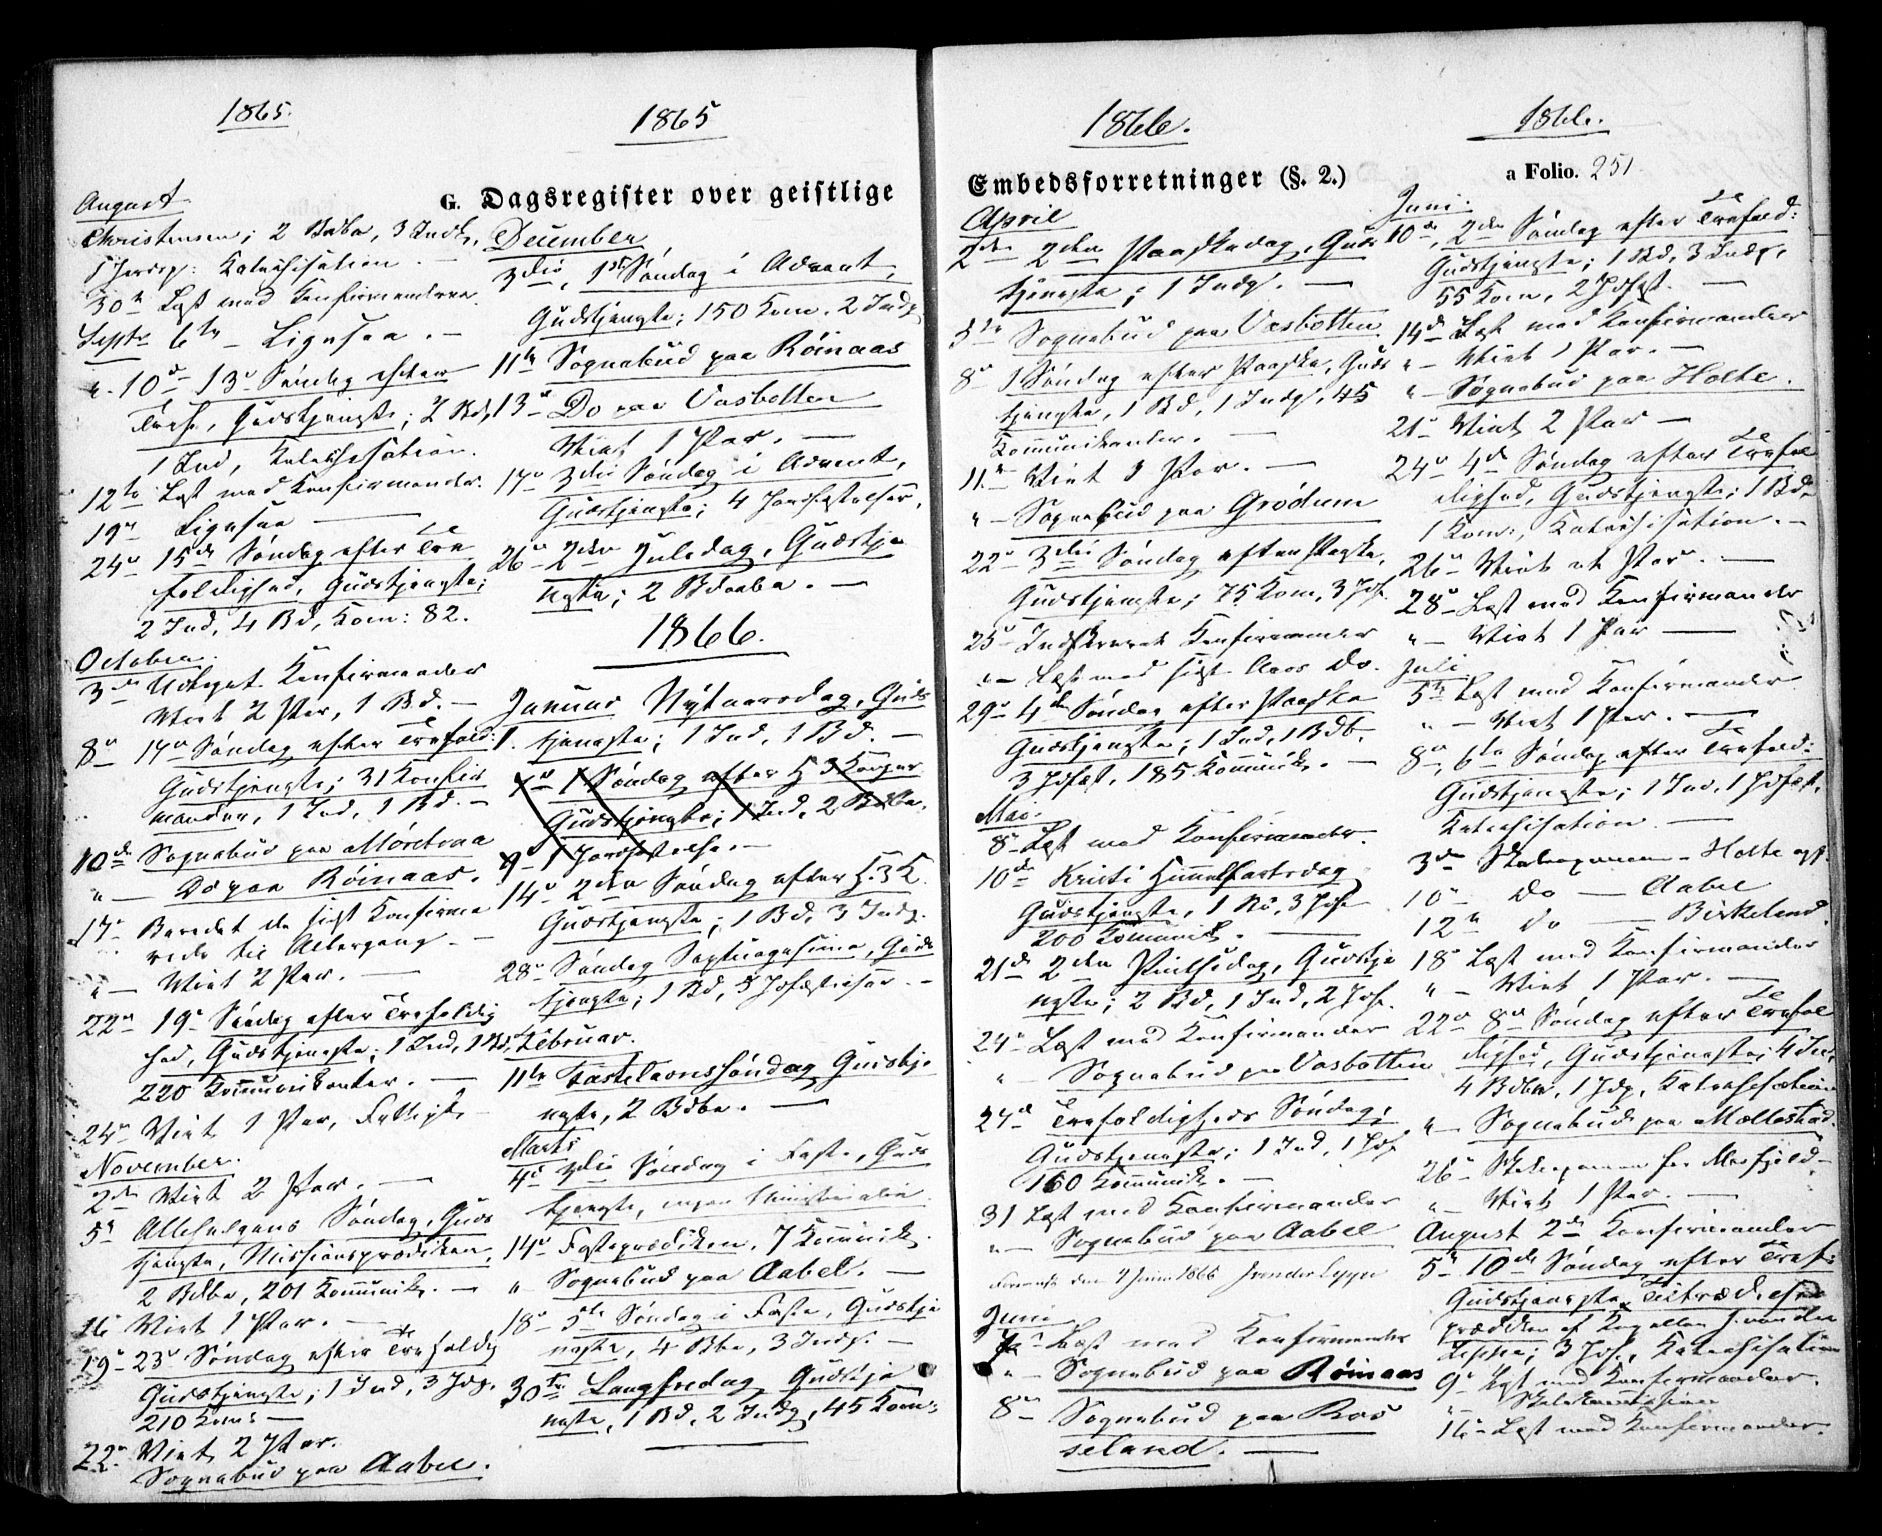 1865.
1865
G. Dagsregister over geistlige
August
Christensen; 2 Bdbr, 3 Indl,
Katechisation.
30te Læst med Konfirmanderne.
Septr 6te – Ligesaa. –
" 10de 13de Søndag efter
Tref, Gudstjeneste; 2 Bd,
1 Ind, Katechisation.
12te Læst med Konfirmander.
19de Ligesaa
24de 15de Søndag efter Tre
foldighed, Gudstjeneste;
2 Ind, 4 Bd, Kom: 82.
October.
3de Konfirmander
Viet 2 Par, 1 Bd. –
8de 17de Søndag efter Trefold:
Gudstjeneste; 31 Konfir
mander, 1 Ind, 1 Bd. –
10de Sognebud paa Møretraa
" – Do paa Rømaas.
17de Beredet de sidst Konfirme
rede til Altergang. –
" – Viet 2 Par. –
22de 19de Søndag efter Trefoldig
hed, Gudstjeneste, 1 Ind, 1 Bd,
220 Kommunikanter. –
24de Viet 1 Par,
November.
2den Viet 2 Par. –
5te Allehelgens Søndag, Guds
tjeneste, Missionsprædiken,
2 Bdbr, 201 Kommunik. –
16 Viet 1 Par. –
19de 23de Søndag efter Trefoldig
Gudstjeneste; 1 Ind, 3 Jdp.
210 Kom: –
22de Viet 2 Par.
Sognebud paa Aabel.
December
3die, 1ste Søndag i Advent,
Gudstjeneste; 150 Kom. 2 Indl
11te Sognebud paa Rømaas
13de Do paa Vasbotten
Viet 1 Par. –
17de 3die Søndag i Advent,
Gudstjeneste; 4 Jordfæstelser.
26de 2den Juledag, Gudstje
neste; 2 Bdbr. –
1866.
Januar Nytaarsdag, Guds
1. tjeneste; 1 Ind, 1 Bd. –
1 Søndag efter H 3 Konger
Gudstjeneste; 1 Ind, 2 Bdbr.
1 Jordfæstelse. –
14de 2den Søndag efter H. 3 K.
Gudstjeneste; 1 Bd, 3 Indl.
28de Søndag Septuagesima, Guds
tjeneste; 1 Bd, 5 Jdfæstelser. –
Februar.
11te Fastelavnssøndag Gudstje
neste, 2 Bdbr. –
Marts
4de 3die Søndag i Faste, Guds
tjeneste, ingen Ministerialia.
14de Fasteprædiken, 7 Kommunik.
" Sognebud paa Aabel. –
18de 5te Søndag i Faste, Gudstje
neste, 4 Bbr, 3 Indl. –
30te Langfredag Gudstje
neste, 1 Bd, 2 Indl, 45 Kom:
1866.
1866.
Embedsforretninger (§. 2.)
a Folio. 251
April
2den 2den Paaskedag, Guds
tjeneste; 1 Indl. –
5te Sognebud paa Vasbotten.
8de 1 Søndag efter Paaske, Guds
tjeneste, 1 Bd, 1 Indl, 45
Kommunikanter. –
11te Viet 3 Par. –
" – Sognebud paa Grødum
22de 3die Søndag efter Paaske,
Gudstjeneste; 75 Kom, 3 Jdf.
25de Indskrevet Konfirmander
" – Læst med Do.
29de 4de Søndag efter Paaske
Gudstjeneste; 1 Ind, 1 Bdb,
3 Jdfæst, 185 Kommunik. –
Mai.
8de Læst med Konfirmander.
10de Kristi Himmelfartsdag
Gudstjeneste, 1 Bd, 3 Jdf.
200 Kommunik. –
21de 2den Pintsedag, Gudstje
neste; 2 Bd, 1 Ind, 2 Jdf.
24de Læst med Konfirmander
" Sognebud paa Vasbotten
27de Trefoldigheds Søndag,
Gudstjeneste; 1 Ind, 1 Jdf
160 Kommunik. –
31 Læst med Konfirmander
" – Sognebud paa Aabel
den 4 Juni 1866
Juni
7de Læst med Konfirmander
" – Sognebud paa Rømaas
8de Sognebud paa Ros
seland. –
Juni.
10de, 2den Søndag efter Trefold:
Gudstjeneste; 1 Bd, 3 Indl,
55 Kom, 2 Jdfæst. –
14de Læst med Konfirmander
" – Viet 1 Par. –
" – Sognebud paa Holte.
21de Viet 2 Par –
24de 4de Søndag efter Trefol
dighed, Gudstjeneste; 1 Bd.
1 Kom:, Katechisation. –
26de Viet et Par. –
28de Læst med Konfirmander
" – Viet 1 Par –
Juli
5te Læst med Konfirmander
" – Viet 1 Par. –
8de, 6te Søndag efter Trefold:
Gudstjeneste; 1 Ind, 1 Jdfæst,
Katechisation –
3de Skoleexamen – Holte
10de Do – Aabel
12te do – Birkeland.
18de Læst med Konfirmander
" – Viet 1 Par. –
22de 8de Søndag efter Trefol
dighed, Gudstjeneste; 4 Ind,
4 Bdbr, 1 Jdf, Katechisation
" – Sognebud paa Mollestad.
26de Skoleexamen for
" – Viet 1 Par. –
August 2de Konfirmander
5te 10de Søndag efter Tref:
Gudstjeneste, Tiltrædelses
prædiken af Kapellan J. von der
Lippe; 3 Jdf, Katechisation
9de Læst med Konfirmander.
16de Læst med Konfirmander.